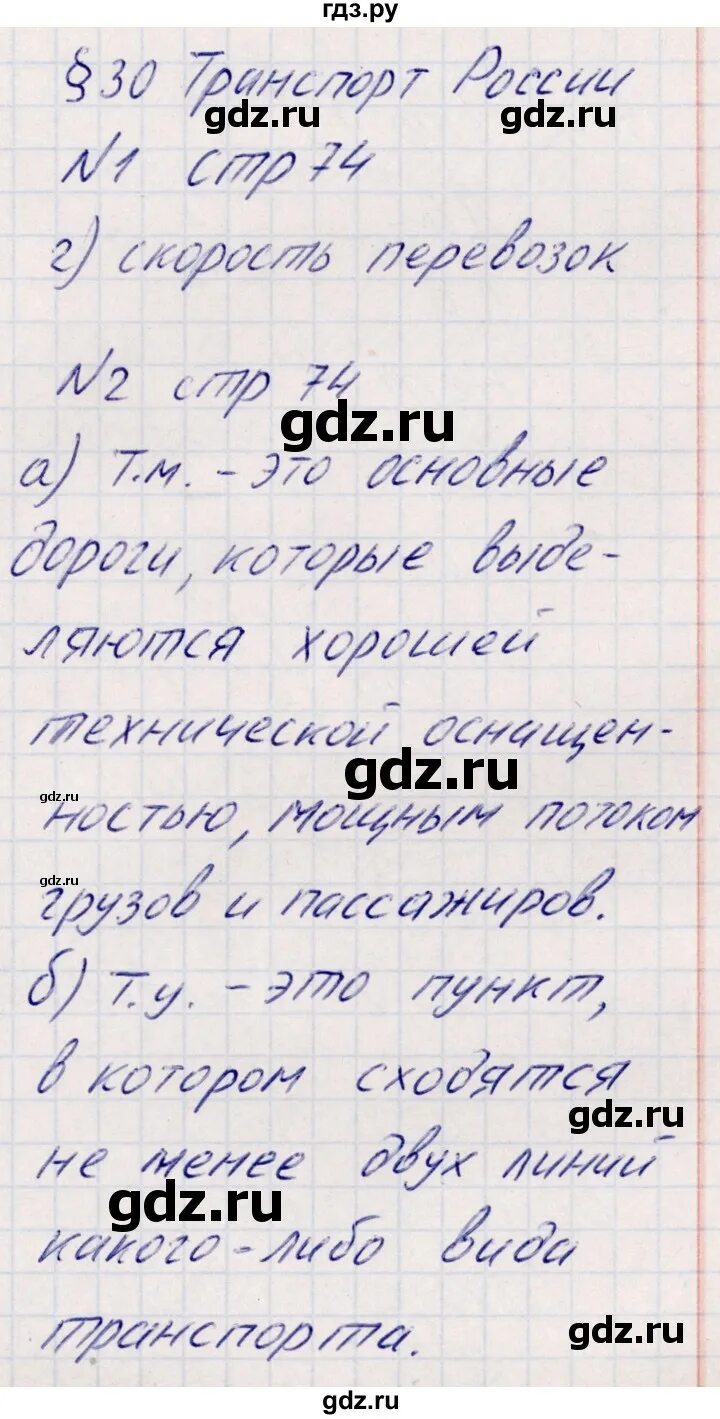 гдз.ру
§30 Транспорт России
gdz.ru gdz.ru
№1 стр 74
г) скорость перевозок
№2 стр 74
gdz.ru
а) т.м. - это основные
дороги, которые выде-
ляются хорошей
технической оснащен-
gdz.ru
gdz.ru
ностью, мощным потоком
gdz.ru
грузов и пассажиров.
б) т.у. - это пункт,
в котором сходятся
gdz.ru
не менее двух линий
gdz.ru
какого-либо вида
транспорта.
gdz.ru
gdz.ru